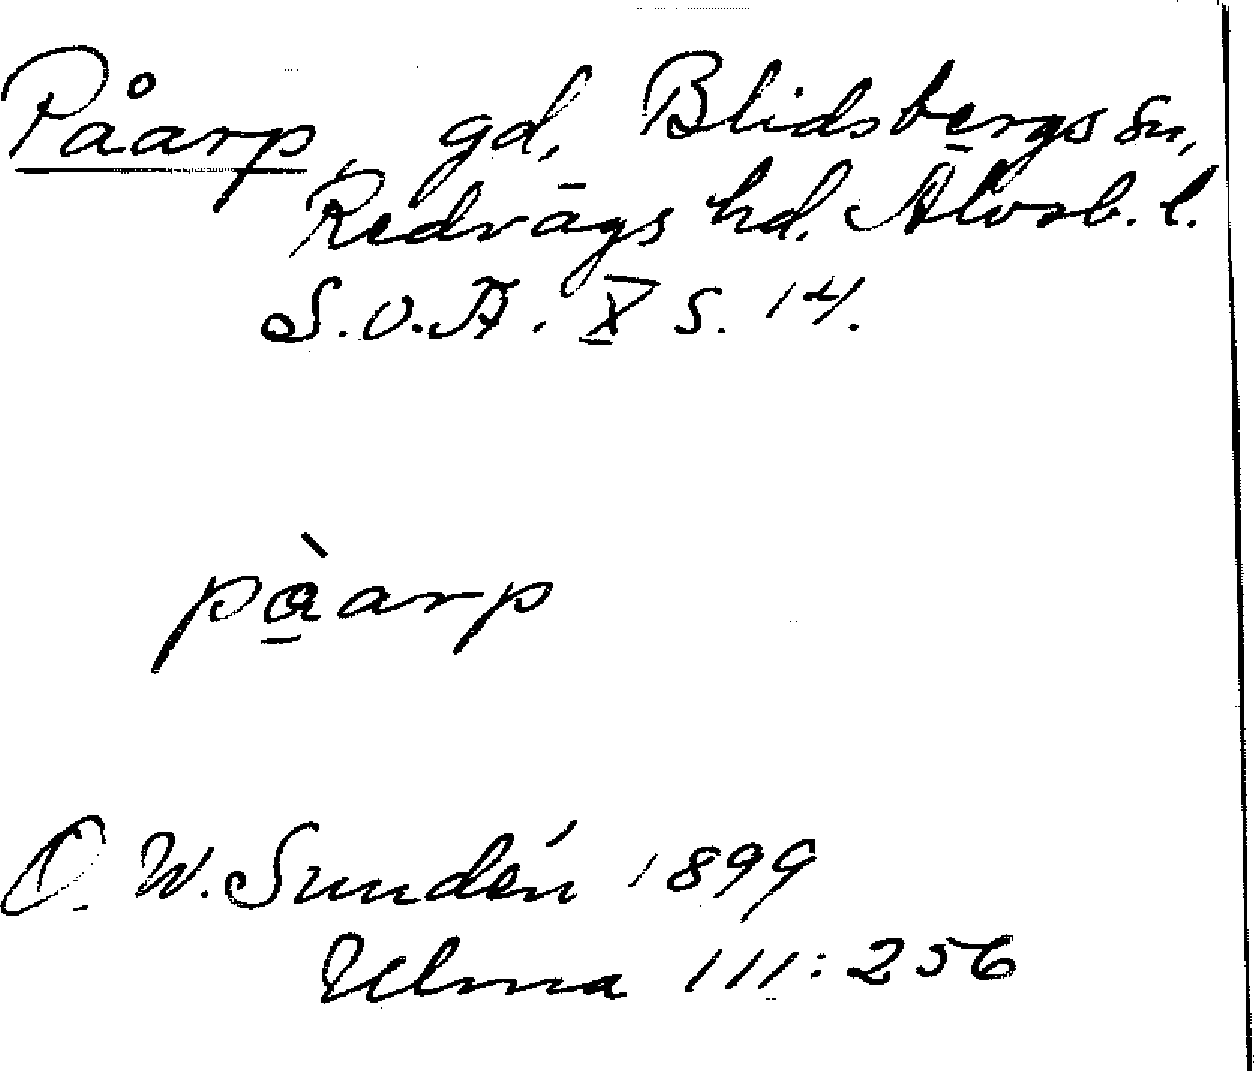 Påarp, gd, Blidsbergs sn,
Redvägs hd. Älvsb. l.
S.O.Ä. X s. 14.
pà̱arp
O. W. Sundén 1899
Ulma 111:256